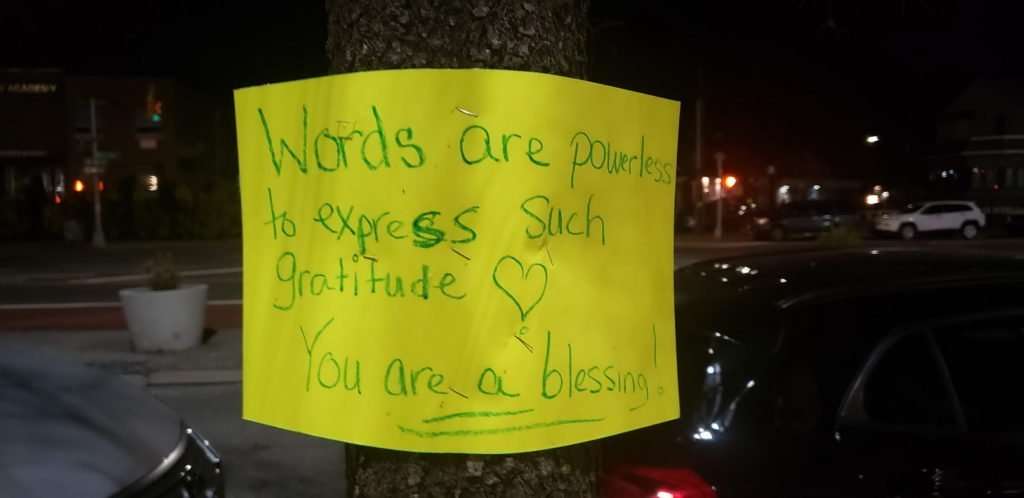 ACADEMY
Words are powerless
to express Such
gratitude
You are a blessing!